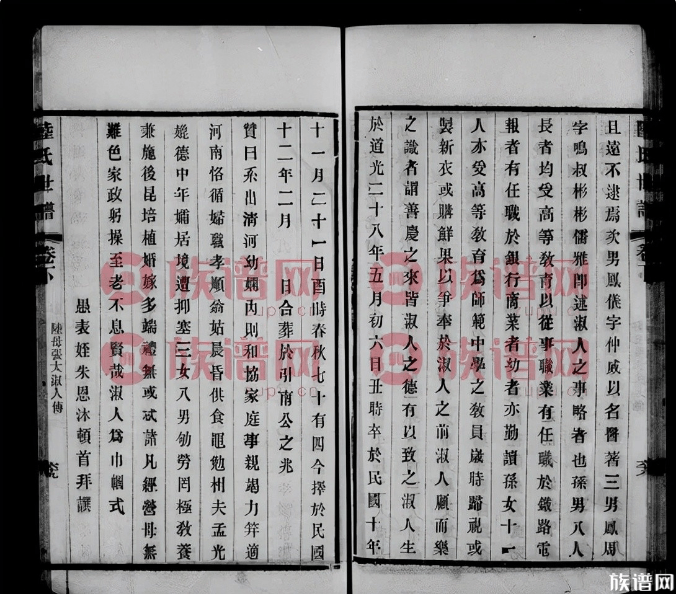 且遠不逮焉次男鳳儀字仲威以名醫著三男鳳周
字鳴叔彬彬儒雅卽述淑人之事略者也孫男八人
長者均受高等敎育以從事職業有任職於鐵路電
報者有任職於銀行商業者幼者亦勤讀孫女十一
人亦受高等敎育爲師範中學之敎員歲時歸視或
製新衣或購鮮果以爭奉於淑人之前淑人顧而樂
之識者謂善慶之來皆淑人之德有以致之淑人生
於道光二十八年五月初六日丑時卒於民國十年
十一月二十一日酉時春秋七十有四今擇於民國
十二年二月 日合葬於引南公之兆
贊曰系出淸河幼嫻內則和協家庭事親竭力笄適
河南恪循婦職孝順翁姑晨昏供食黽勉相夫孟光
媲德中年孀居境遭抑塞三女八男劬勞罔極敎養
兼施後昆培植婚嫁多端禮無或忒諸凡經營毋無
難色家政躬操至老不息賢哉淑人爲巾幗式
愚表姪朱恩沐頓首拜譔
陸氏世譜 卷下
陳母張太淑人傳
族谱网
族谱网
族谱网
族谱网
族谱网